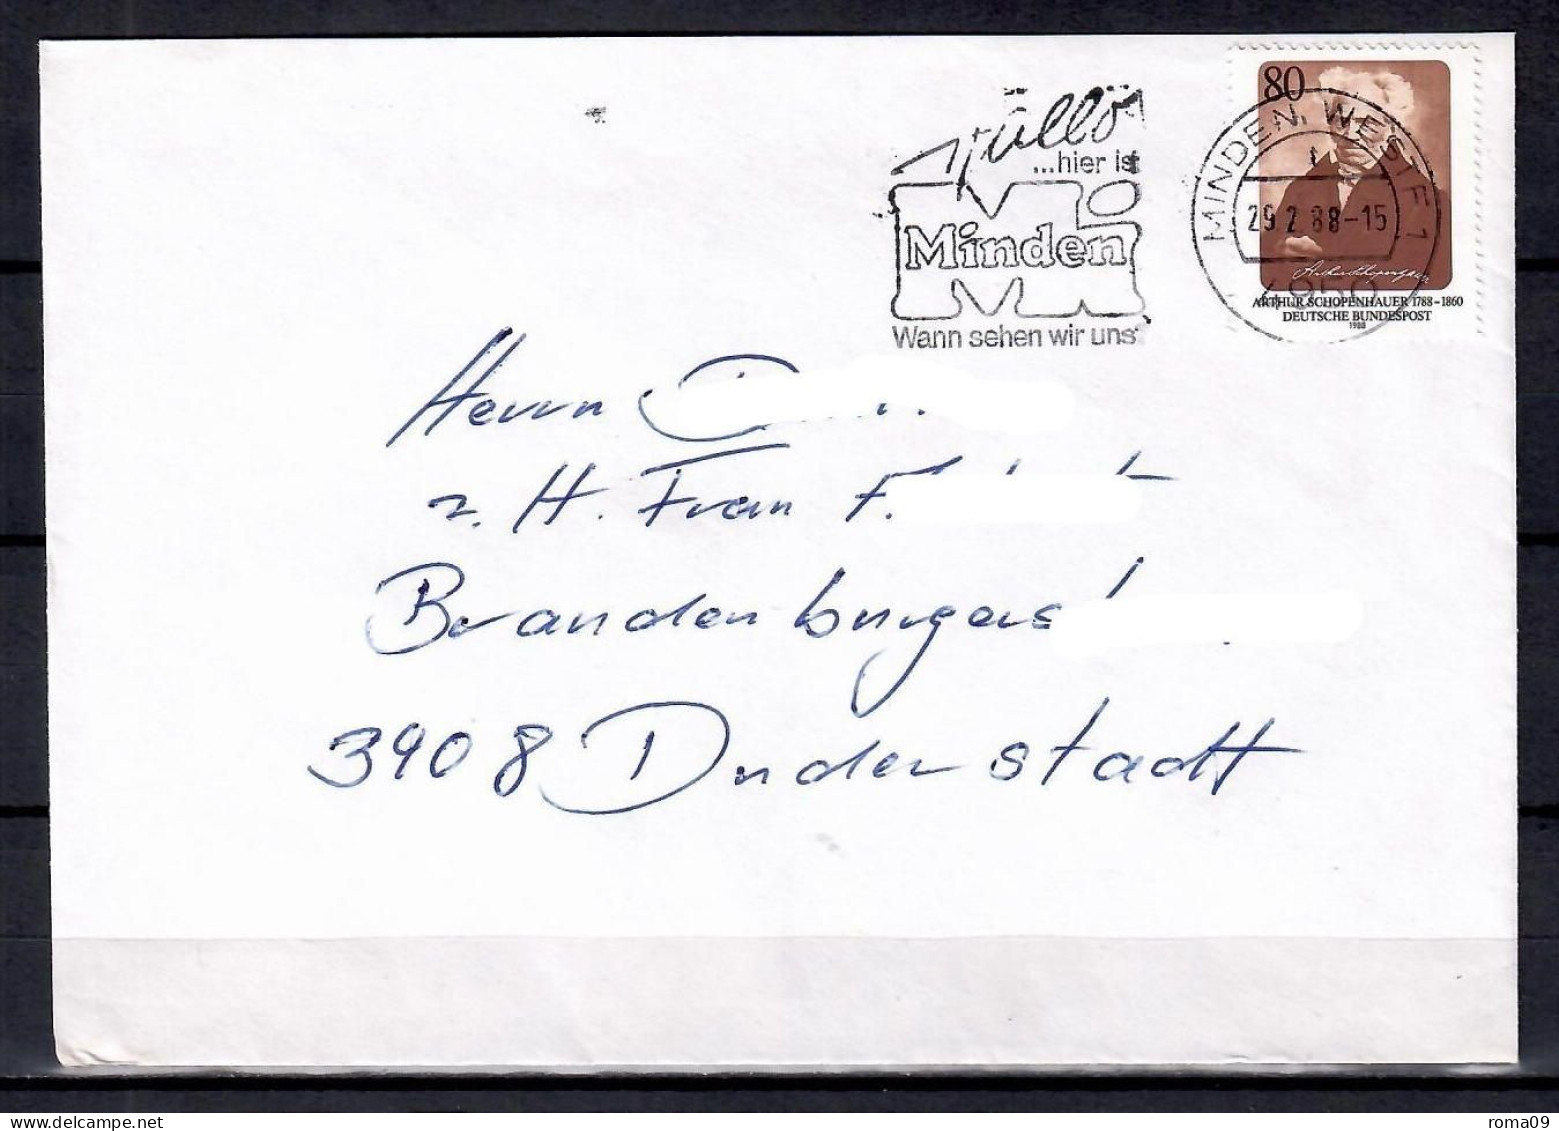 Hallo
...hier ist
Minden
Wann sehen wir uns?
MINDEN, WESTF 1
29.2.88-15
4950
80
Arthur Schopenhauer
ARTHUR SCHOPENHAUER 1788-1860
DEUTSCHE BUNDESPOST
1988
Herrn
z. H. Frau F.
Brandenburgers
3408 Duderstadt
www.delcampe.net
roma09